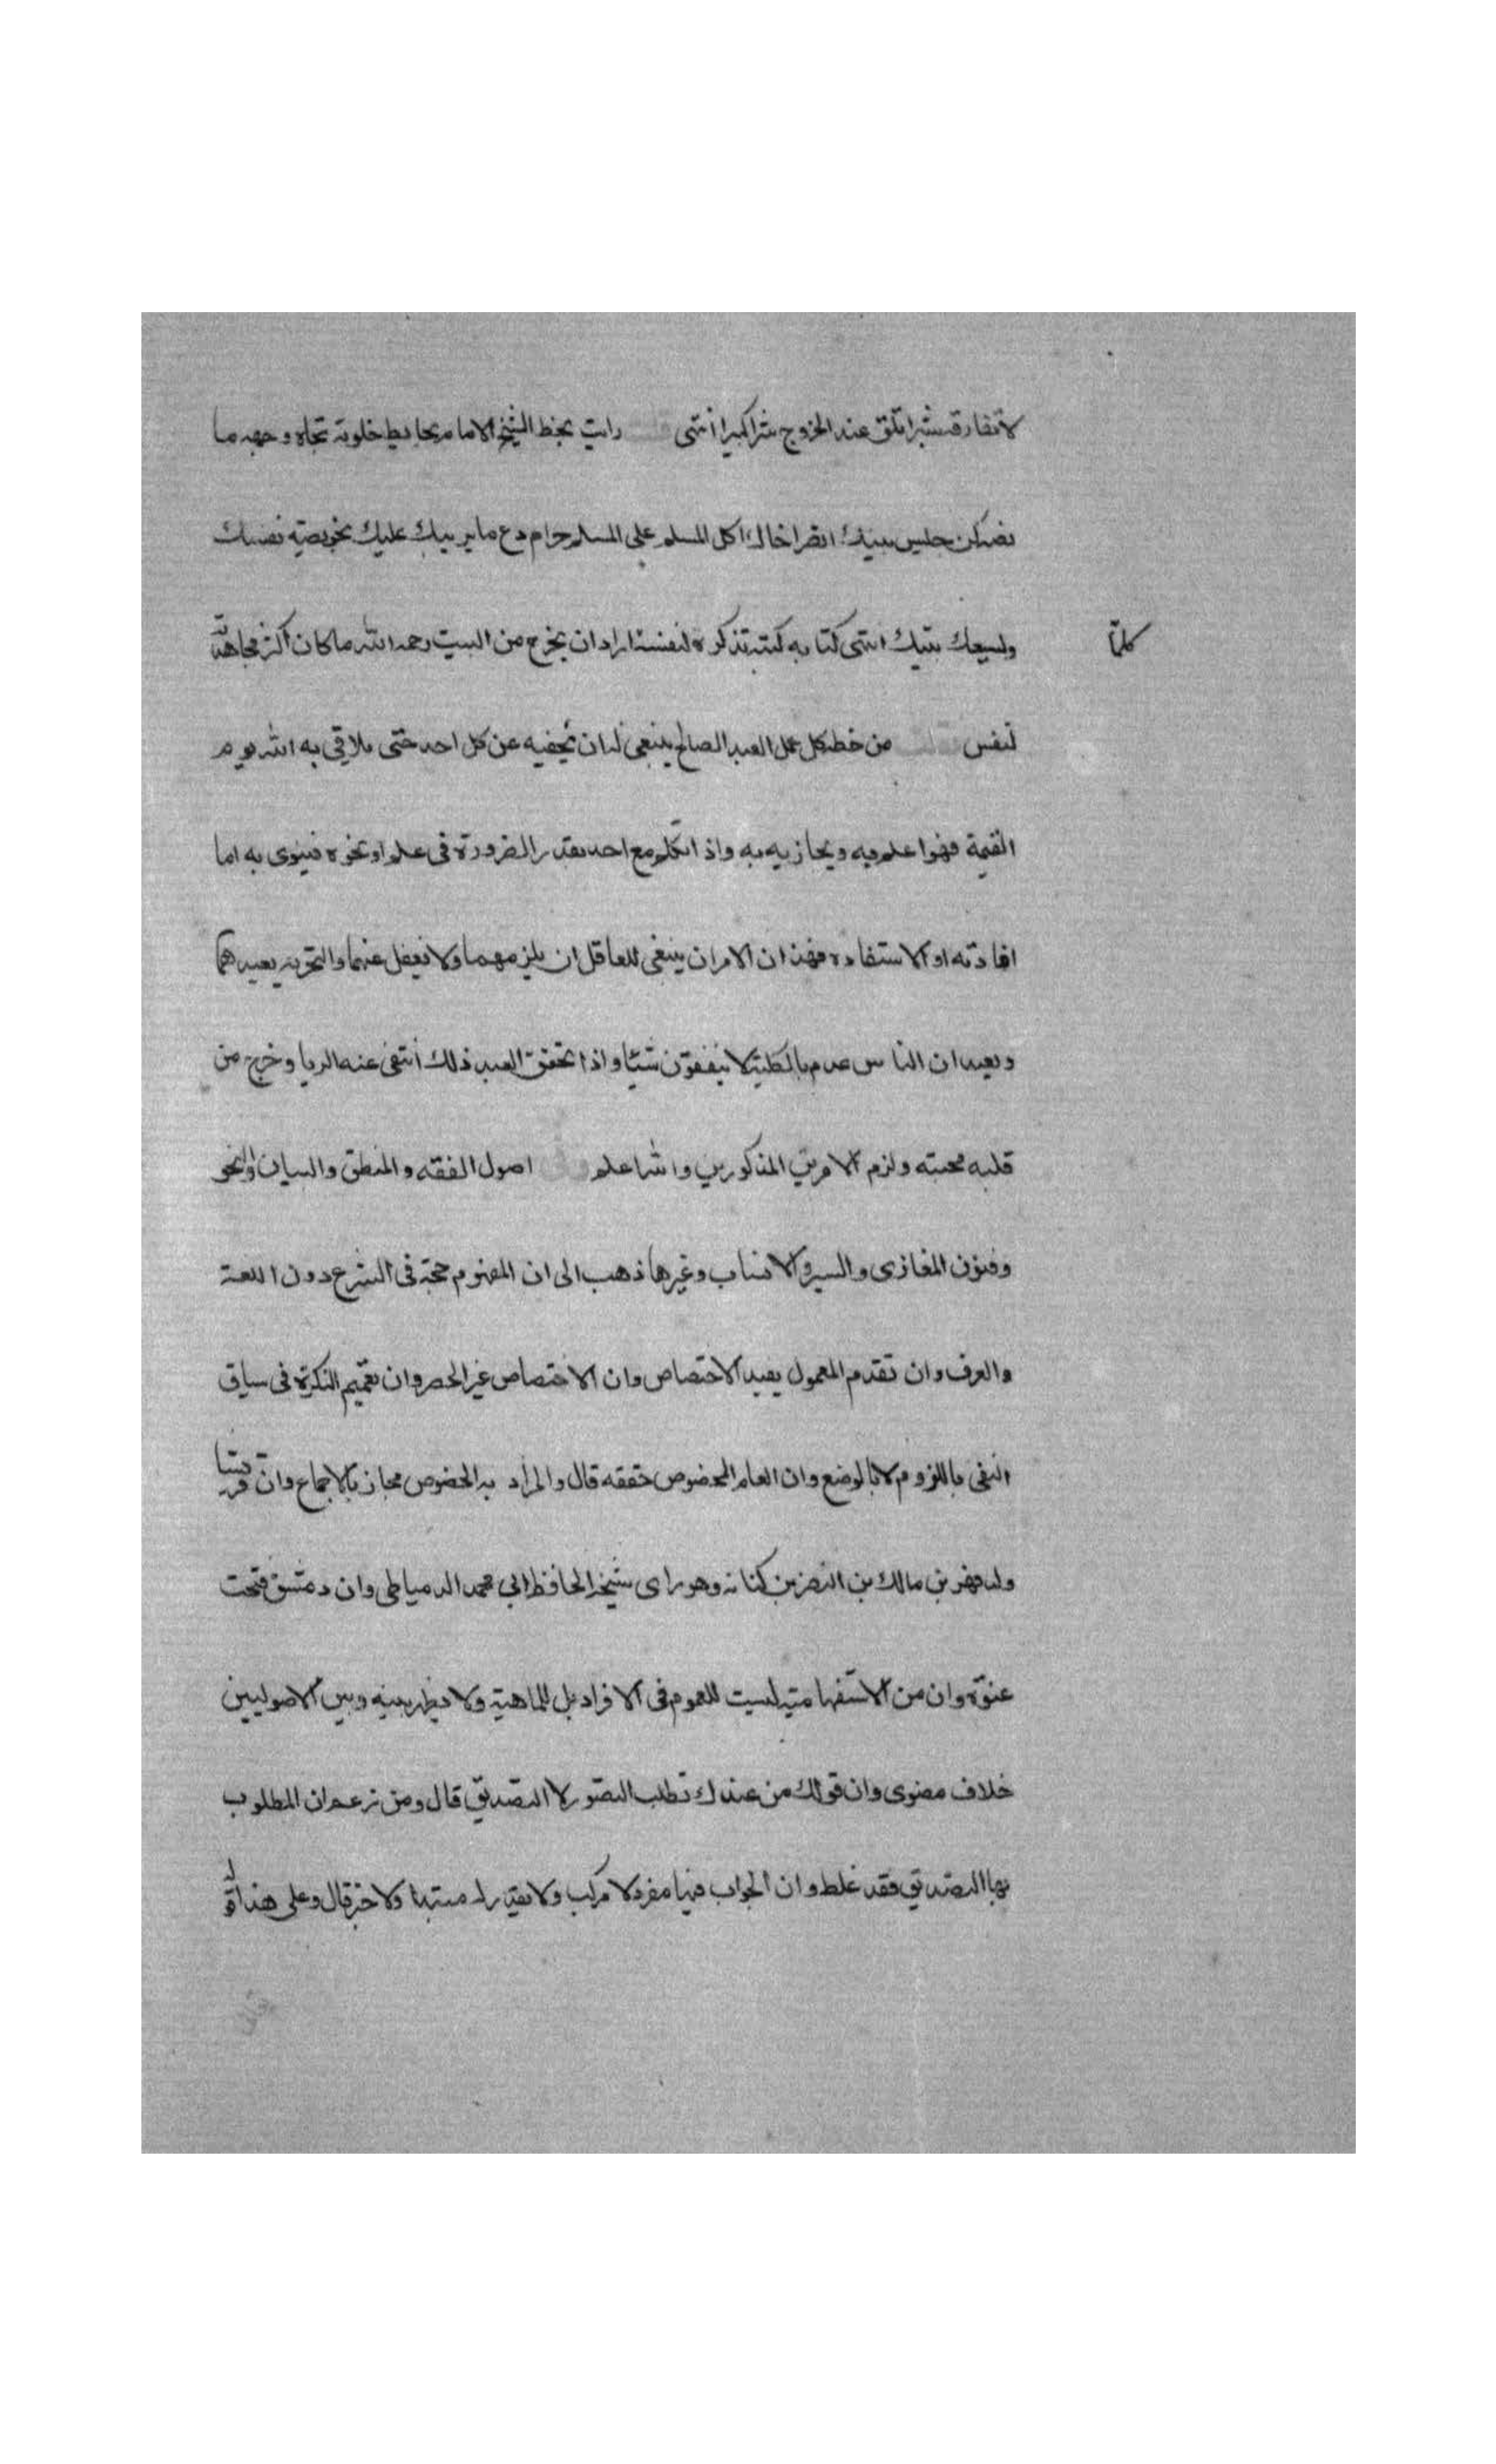 لا تفارقه شبرا تلق عند الخروج شرا كبيرا انتهى رايت بخط الشيخ الامام بحايط خلوته تجاه وجهه ما
نصه كن جليس بيتك انصر اخاك كل المسلم على المسلم حرام دع ما يريبك عليك بخويصية نفسك
وليسعك بيتك انتهى كتابه كتبه تذكرة لنفسه اذا اراد ان يخرج من البيت رحمه الله ما كان اكثر مجاهدته
كلما
لنفس من خطه كل عمل العبد الصالح ينبغي له ان يخفيه عن كل احد حتى يلاقي به الله يوم
القيمة فهو اعلم به ويجازيه به واذا تكلم مع احد بقدر الضرورة في علم او نحوه فينوى به اما
افادته او الاستفادة فهذان الامران ينبغي للعاقل ان يلزمهما ولا يغفل عنهما والتجربة يعيدهما
وبعيد ان الناس عدم بالكلية لا ينفعون شيئا واذا تحقق العبد ذلك انتفى عنه الريا وخرج من
قلبه محبته ولزم الامرين المذكورين والله اعلم اصول الفقه والمنطق والبيان والنحو
وفنون المغازى والسير والانساب وغيرها ذهب الى ان المفهوم حجة في الشرع دون اللغة
والعرف وان تقدم المعمول يفيد الاختصاص وان الاختصاص غير الحصر وان تعميم النكرة في سياق
النفي باللزوم لا بالوضع وان العام المخصوص حقيقه قال والمراد به الخصوص مجاز بالاجماع وان قريشا
ولد فهر بن مالك بن النضر بن كنانه وهو راى شيخه الحافظ ابي محمد الدمياطى وان دمشق فتحت
عنوة وان من الاستفهامية ليست للعموم في الافراد بل للماهية ولا يظهر بينه وبين الاصوليين
خلاف معنوى وان قولك من عندك تطلب التصور لا التصديق قال ومن زعم ان المطلوب
بها التصديق فقد غلط وان الجواب فيها مفرد لا مركب ولا يقدر له مبتدا ولا خبر قال وعلى هذا قوله